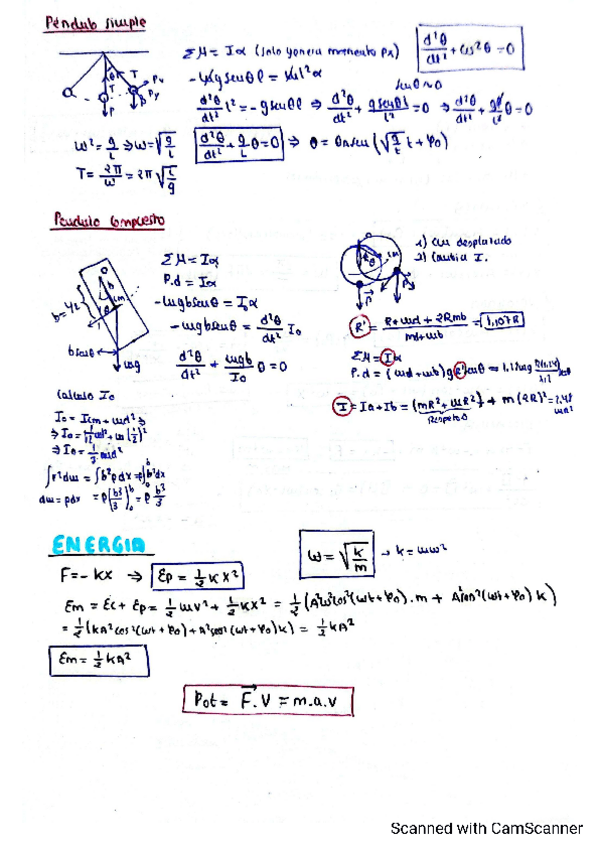 Péndulo simple
ΣM = Iα (solo genera momento Px)
d²θ/dt² + ω²θ = 0
-mg senθ l = ml²α
senθ≈θ
d²θ/dt² l² = -g senθ l ⇒ d²θ/dt² + g senθ l/l² = 0 ⇒ d²θ/dt² + g/l θ = 0
T Px
T Py
P P
ω² = g/l ⇒ ω = √g/l
d²θ/dt² + g/l θ = 0 ⇒ θ = θ₀ sen(√g/l t + φ₀)
T = 2π/ω = 2π√l/g
Péndulo compuesto
ΣM = Iα
P.d = Iα
-mgb senθ = I₀α
-mgb senθ = d²θ/dt² I₀
d²θ/dt² + mgb/I₀ θ = 0
O
b
cm
θ
b = L/2
b senθ
mg
1) cm desplazado
2) Cambia I.
R' = = 1,107R
ΣM = Iα
I = Ia + Ib = (mR² + mR²) + m(2R)² =
respecto O
Cálculo I₀
I₀ = Icm + md² ⇒
⇒ I₀ = 1/12 ml² + m(l/2)²
⇒ I₀ = 1/3 ml²
∫r²dm = ∫b²ρdx = ρ∫b²dx
dm = ρdx = ρ(b³/3) = ρ b³/3
ENERGIA
ω = √k/m → k = mω²
F = -kx ⇒ Ep = 1/2 kx²
Em = Ec + Ep = 1/2 mv² + 1/2 kx² = 1/2 (A²ω²cos²(ωt + φ₀).m + A²sen²(ωt + φ₀) k)
= 1/2 (kA²cos²(ωt + φ₀) + A²sen²(ωt + φ₀)k) = 1/2 kA²
Em = 1/2 kA²
Pot = F.v = m.a.v
Scanned with CamScanner